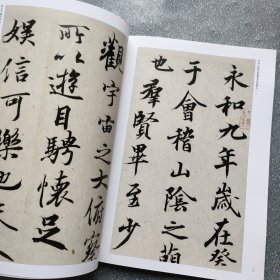 永和九年歲在癸
于會稽山陰之蘭
也羣賢畢至少
觀宇宙之大俯察
所以遊目騁懷足
娛信可樂也夫